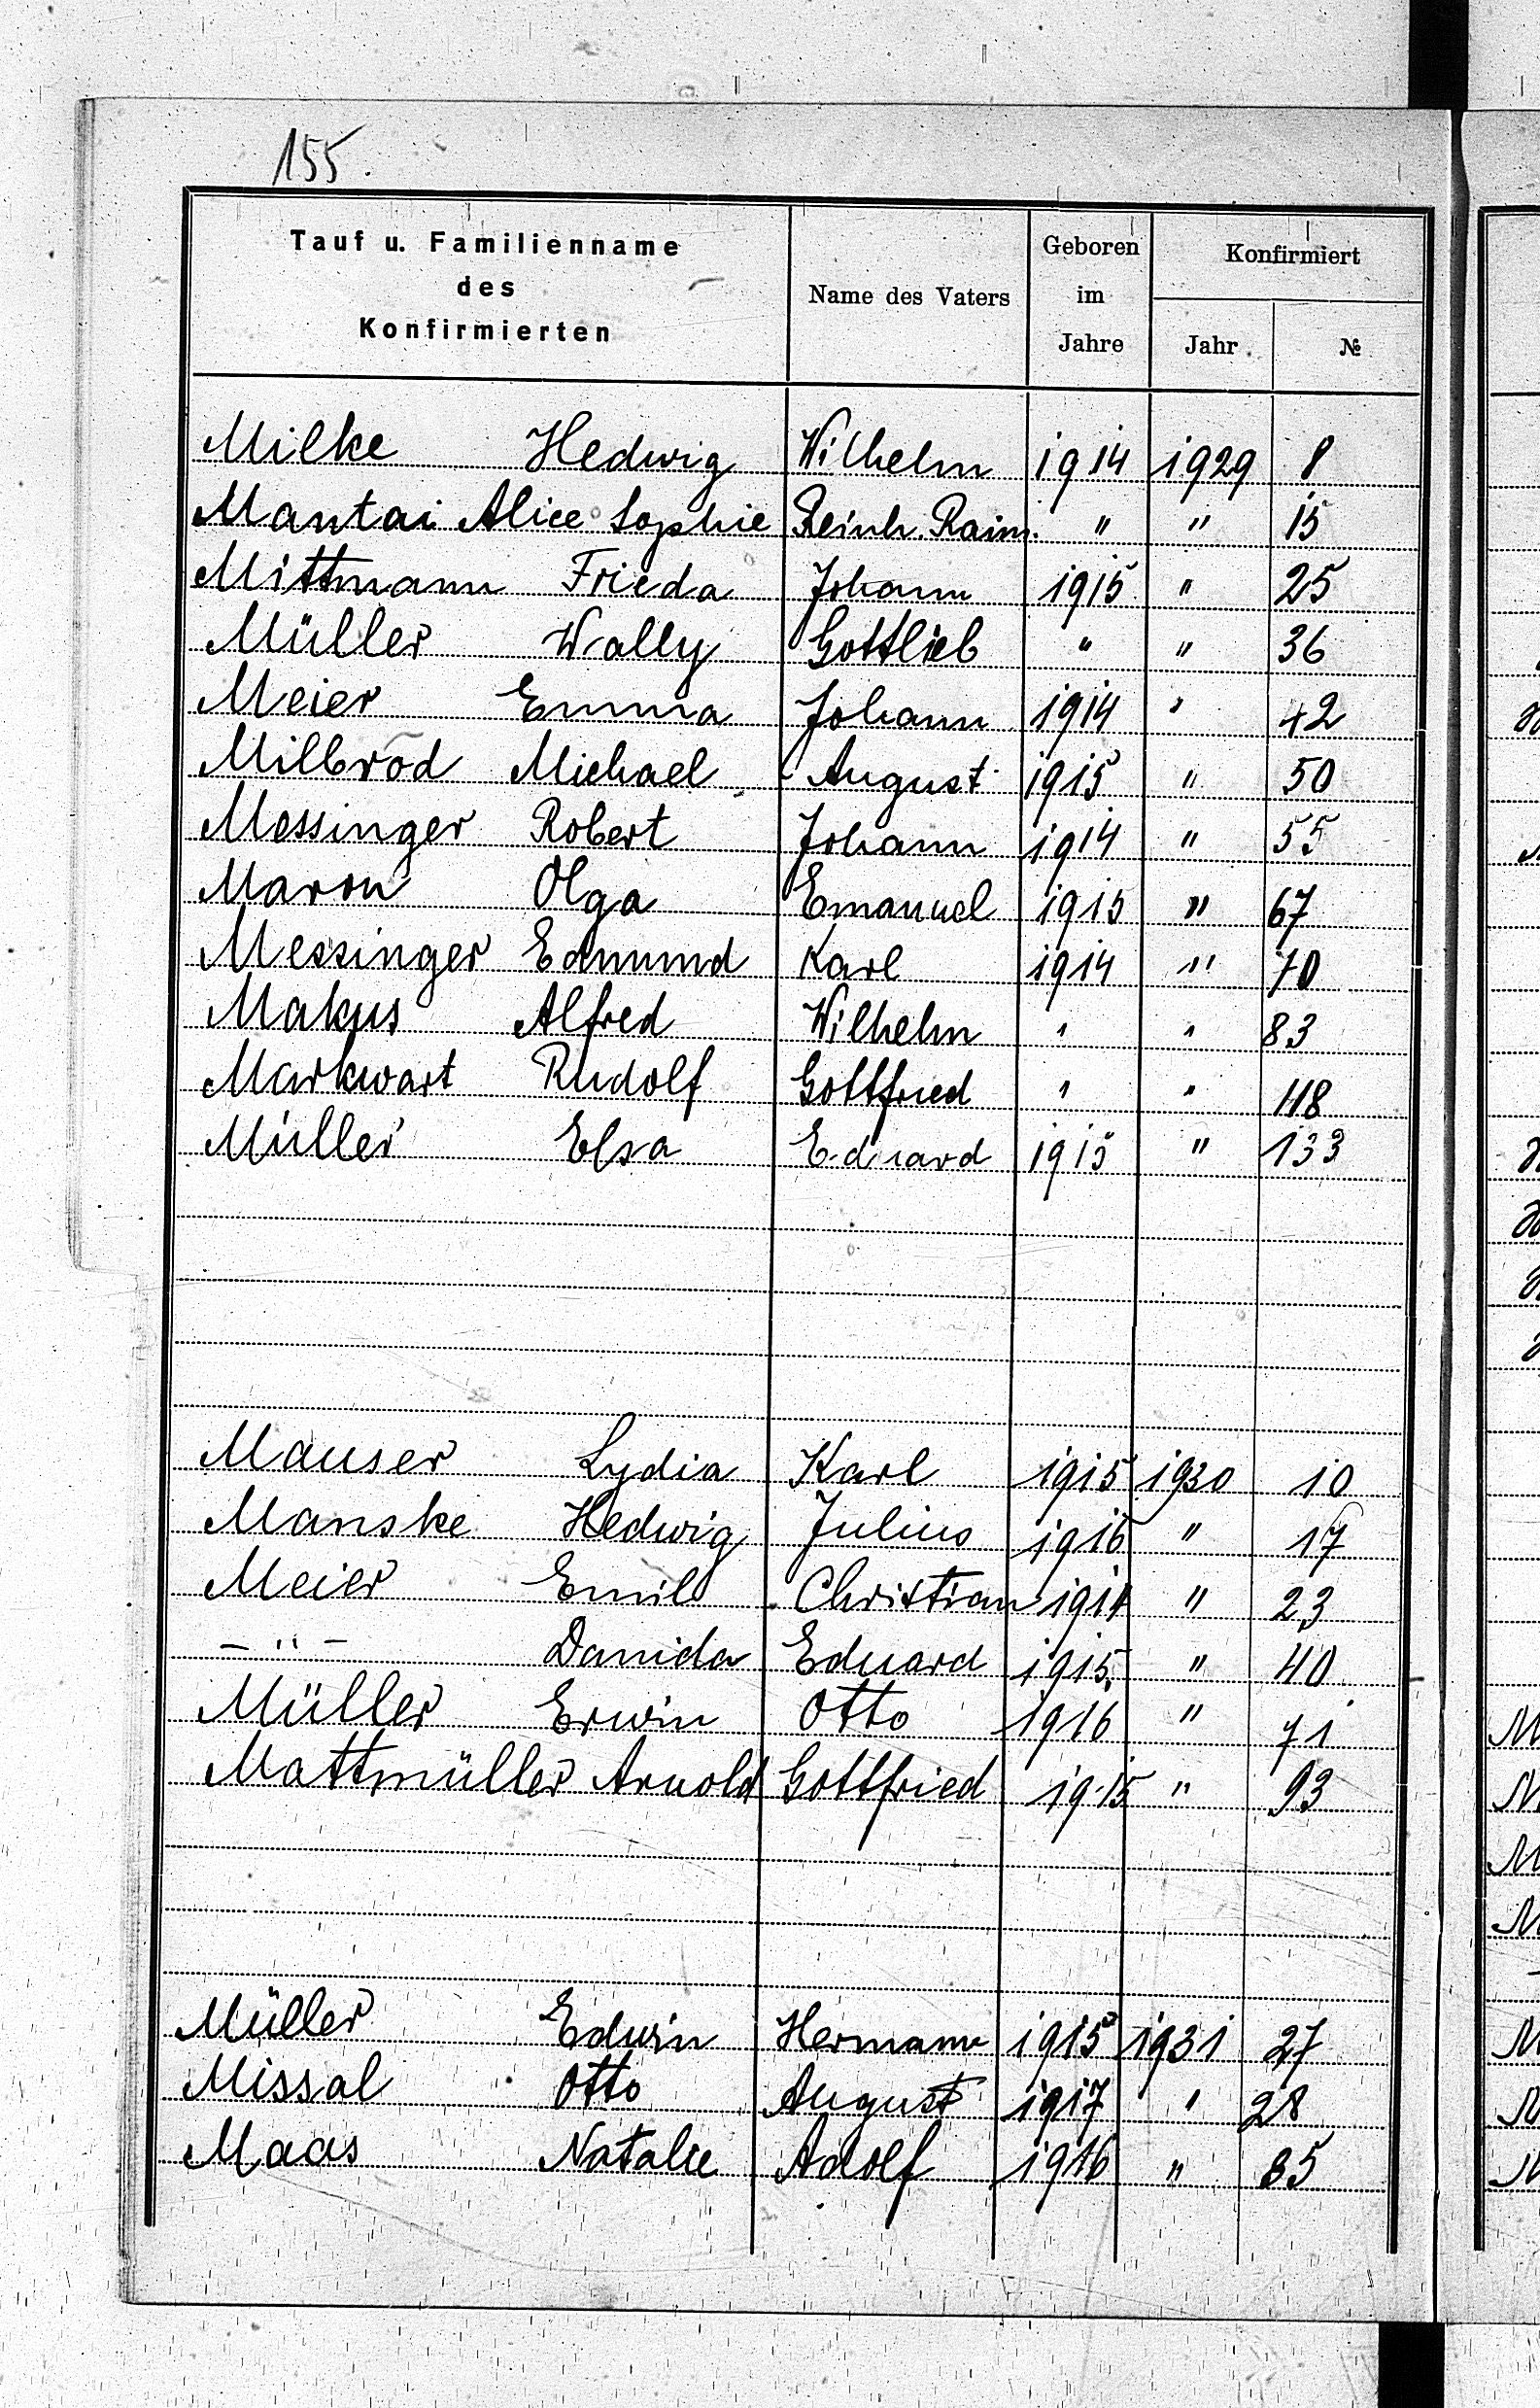 155.
Tauf u. Familienname des Konfirmierten | Name des Vaters | Geboren im Jahre | Konfirmiert Jahr. | №
Milke Hedwig Wilhelm 1914 1929 8
Mantai Alice Sophie Reinh. Raim. " " 15
Mittmann Frieda Johann 1915 " 25
Müller Wally Gottlieb " " 36
Meier Emma Johann 1914 " 42
Milbrod Michael August 1915 " 50
Messinger Robert Johann 1914 " 55
Maron Olga Emanuel 1915 " 67
Messinger Edmund Karl 1914 " 70
Makus Alfred Wilhelm " " 83
Markwart Rudolf Gottfried " " 118
Müller Elsa Eduard 1915 " 133
Mauser Lydia Karl 1915 1930 10
Manske Hedwig Julius 1916 " 17
Meier Emil Christian 1914 " 23
— " — Danida Eduard 1915 " 40
Müller Erwin Otto 1916 " 71
Mattmüller Arnold Gottfried 1915 " 93
Müller Edwin Hermann 1915 1931 27
Missal Otto August 1917 " 28
Maas Natalie Adolf 1916 " 85